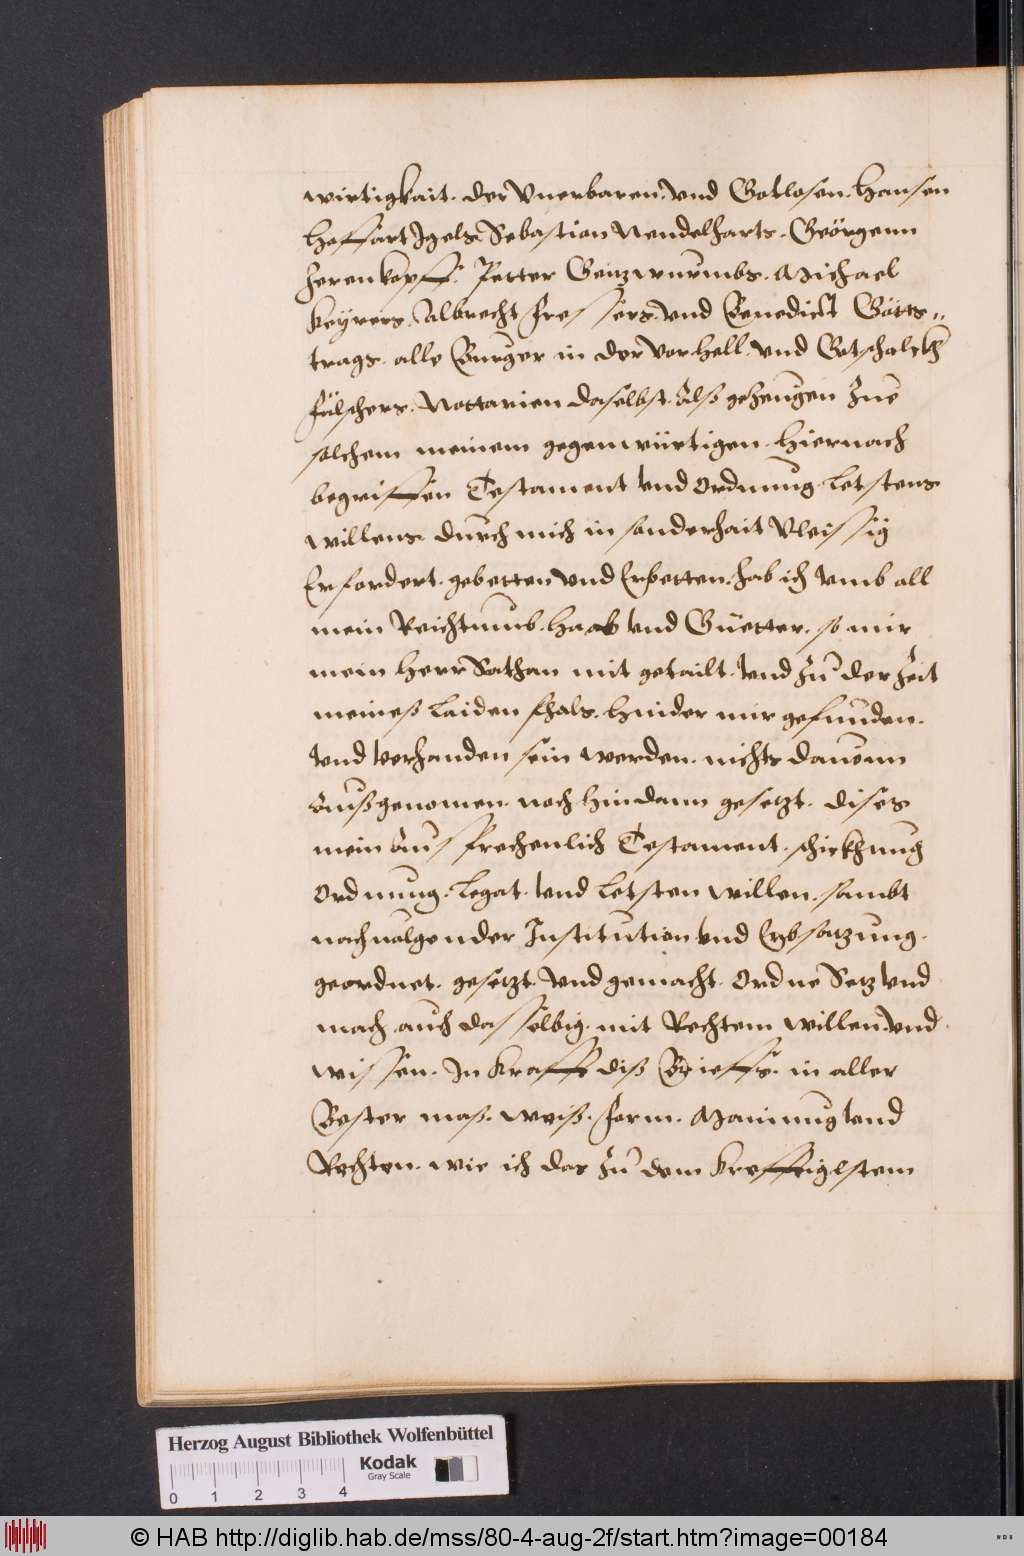 wirtigkait. der Vnerbaren, vnd Gotlosen. Hansen
Hoffart Igels Sebastian Nendelharts. Geörgenn
Herenkopff. Petter Geitzwurmbs. Michael
Keyrers. Albrecht Fressers. vnd Benedict Gotts=
trags. alle Burger in der Vorhell. vnd Gotschalckh
Fülschers. Nottarien daselbst. Alß gezeugen Zue
solchem meinem gegenwürtigen. Hiernach
begriffen Testament vnd Ordnung. Letstens
willens. durch mich in sonderhait Vleissig
Erfordert. gebetten vnd Erbetten. hab ich vmb all
mein Reichtumb. Haab vnd Güetter. so mir
mein Herr Sathan mit getailt. vnd Zu der Zeit
meineß Laiden fhals. Hinder mir gefunden.
vnd verhanden sein werden. nichts dauonn
Außgenomen. noch hindann gesetzt. dises
mein Aussprechenlich Testament. schickhung
Ordnung. Legat. vnd Letsten willen. sambt
nachuolgender Institution vnd Erbsatzung.
geordnet. gesetzt. vnd gemacht. Ordne Setz vnd
mach auch dasselbig. mit Rechtem willen. vnd
wissen. In Krafft diß Brieffs. in aller
Bester maß. weiß. form. Mainung vnd
Rechten. wie ich das Zu dem Krefftigistem
Herzog August Bibliothek Wolfenbüttel
Kodak
Gray Scale
0 1 2 3 4
© HAB http://diglib.hab.de/mss/80-4-aug-2f/start.htm?image=00184